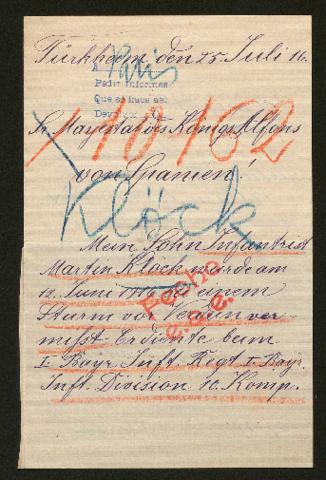 Türkheim, den 25. Juli 16.
A Paris
Pedir informes
Que se haga así
Sr. Mayestät des Königs Alfons
von Spanien!
Klöck
Mein Sohn Infantrist
Martin Klöck wurde am
12. Juni 1916 bei einem
Sturm vor Verdun ver
mißt. Er diente beim
I. Bayr. Inft. Regt. I. Bayr.
Inft. Division 10. Komp.
Fecho